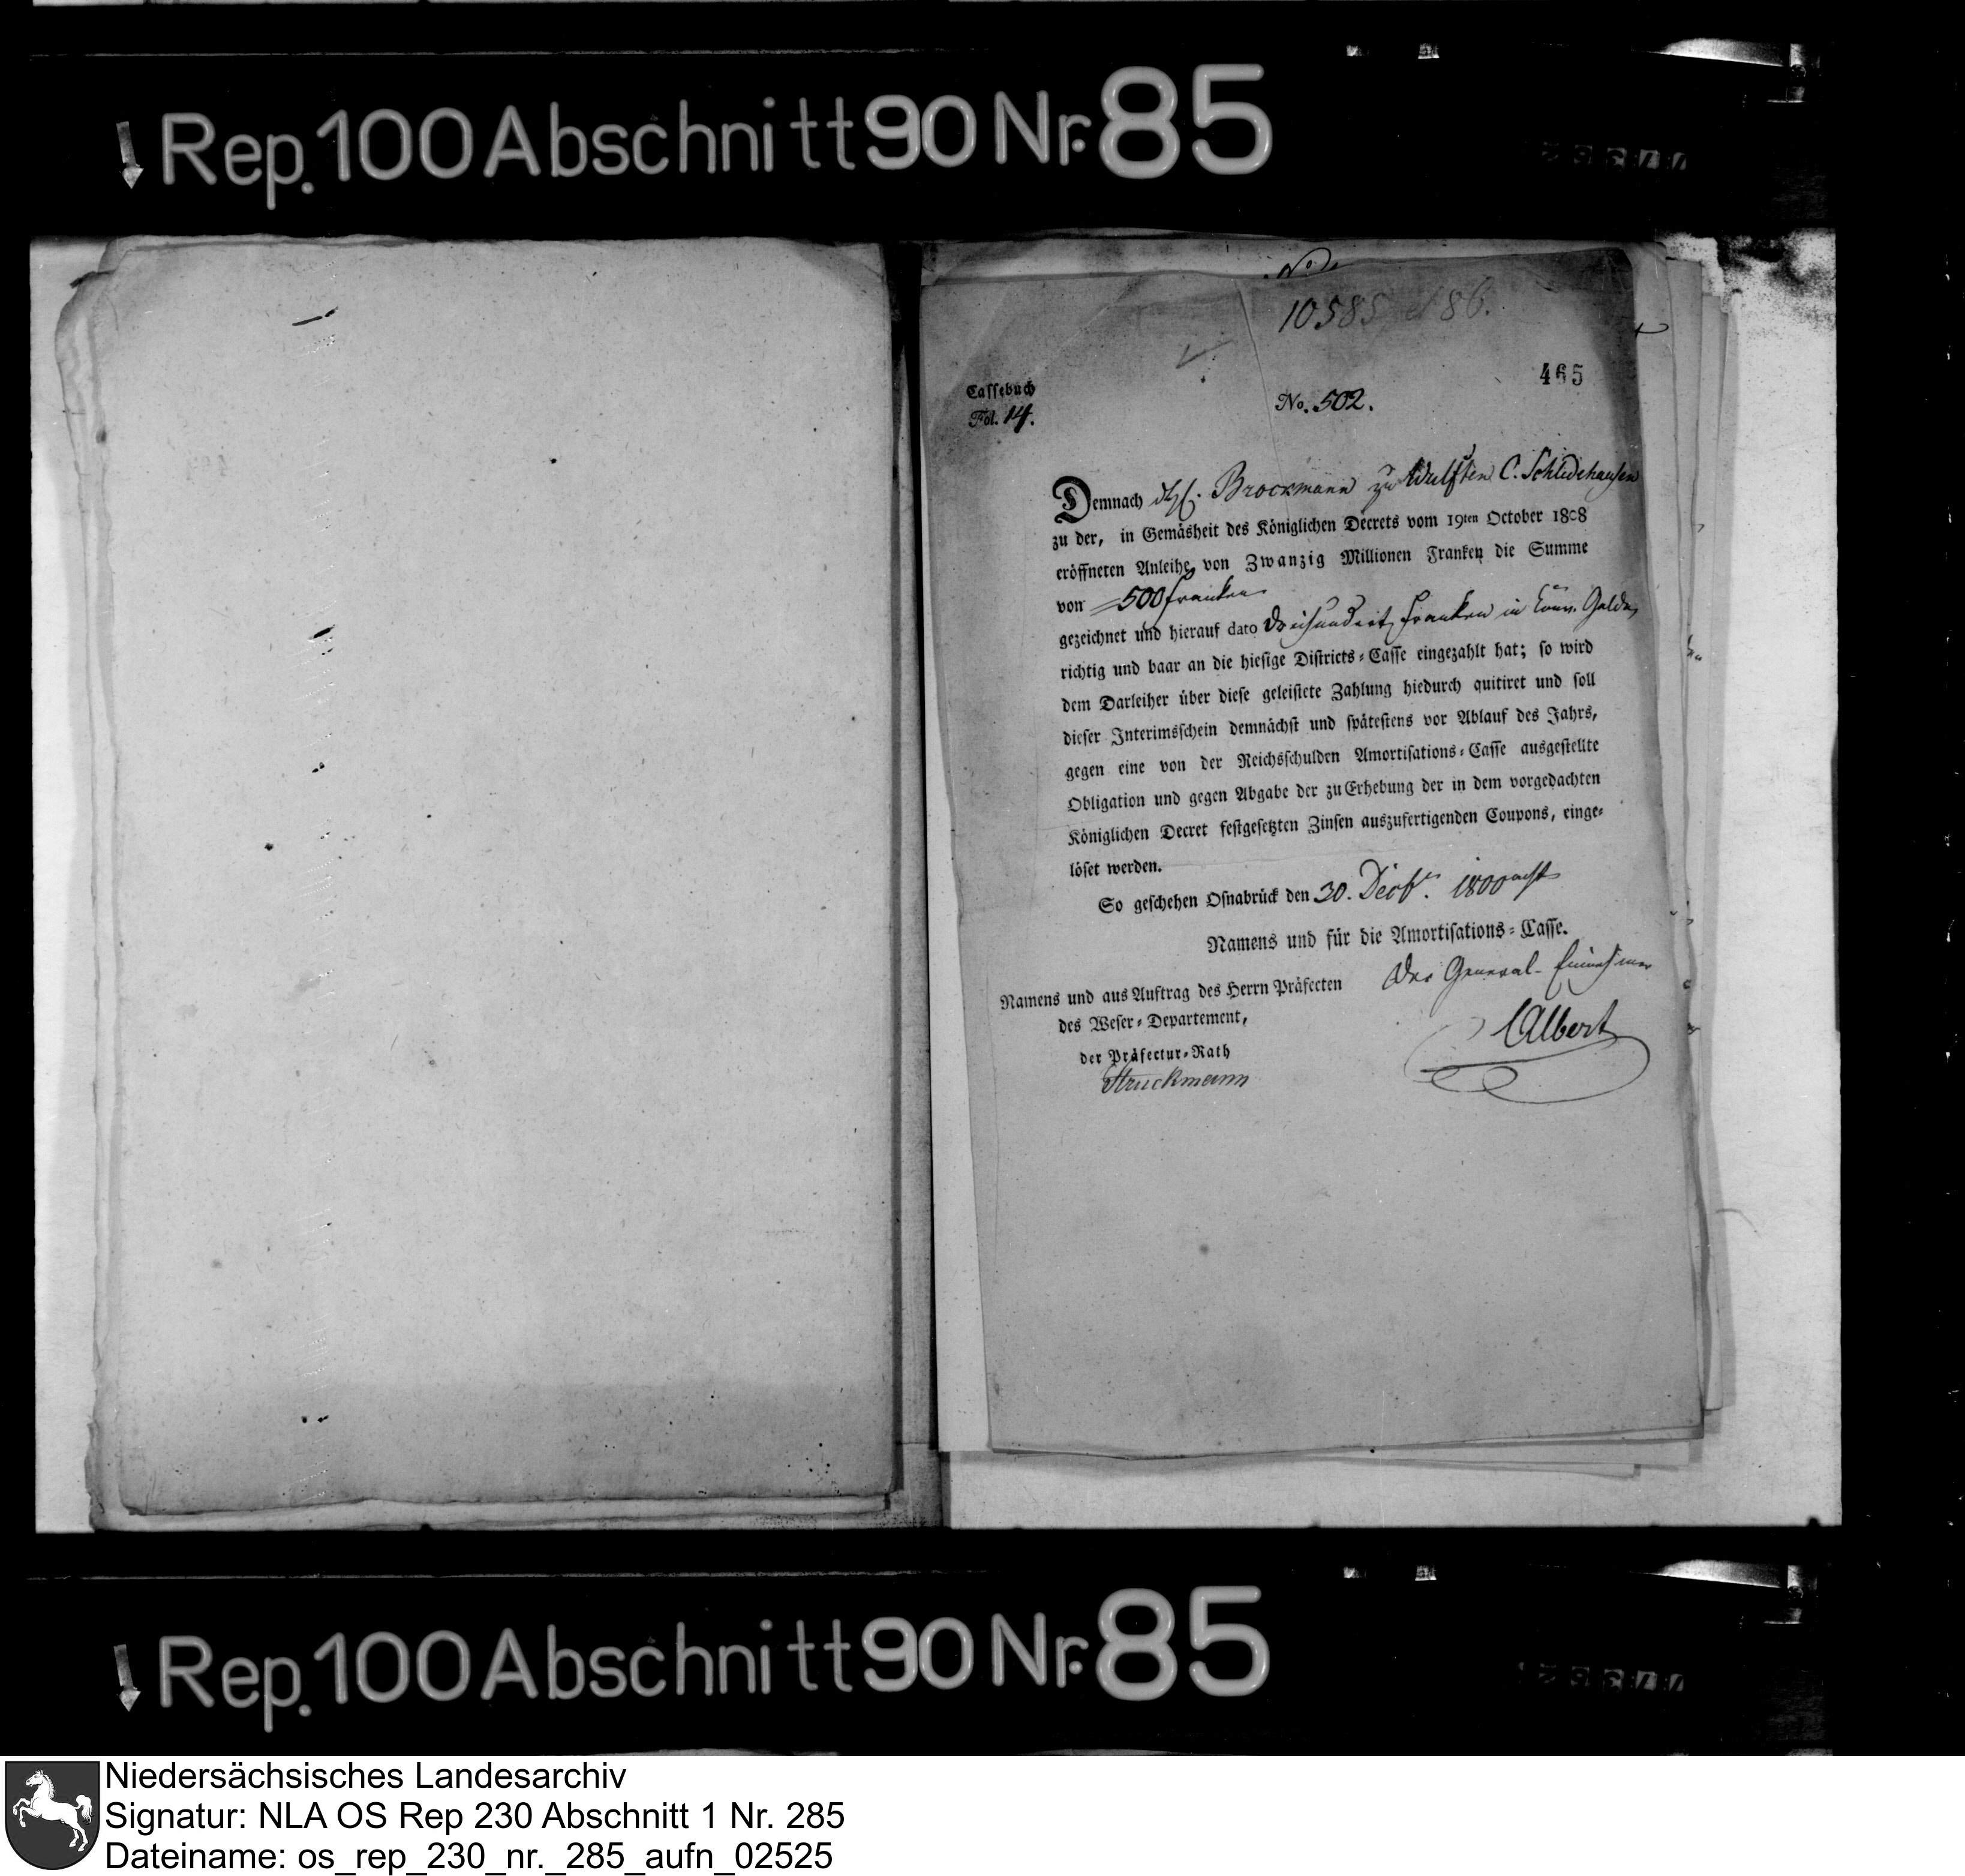 Rep. 100 Abschnitt 90 Nr. 85
No.
10585 et 86.
465
Cassebuch
Fol. 14.
No. 502.
Demnach Brockmann zu Wulften C. Schledehausen
zu der, in Gemäsheit des Königlichen Decrets vom 19ten October 1808
eröffneten Anleihe von Zwanzig Millionen Franken die Summe
von 500 franken
gezeichnet und hierauf dato Dreihundert Franken in Conv. Gelde,
richtig und baar an die hiesige Districts-Casse eingezahlt hat; so wird
dem Darleiher über diese geleistete Zahlung hiedurch quitiret und soll
dieser Interimsschein demnächst und spätestens vor Ablauf des Jahrs,
gegen eine von der Reichsschulden Amortisations-Casse ausgestellte
Obligation und gegen Abgabe der zu Erhebung der in dem vorgedachten
Königlichen Decret festgesetzten Zinsen auszufertigenden Coupons, einge-
löset werden.
So geschehen Osnabrück den 30. Decbr. 1800 acht
Namens und für die Amortisations-Casse.
Der General-Einnehmer
Albert
Namens und aus Auftrag des Herrn Präfecten
des Weser-Departement,
der Präfectur-Rath
Struckmann
Rep. 100 Abschnitt 90 Nr. 85
Niedersächsisches Landesarchiv
Signatur: NLA OS Rep 230 Abschnitt 1 Nr. 285
Dateiname: os_rep_230_nr._285_aufn_02525